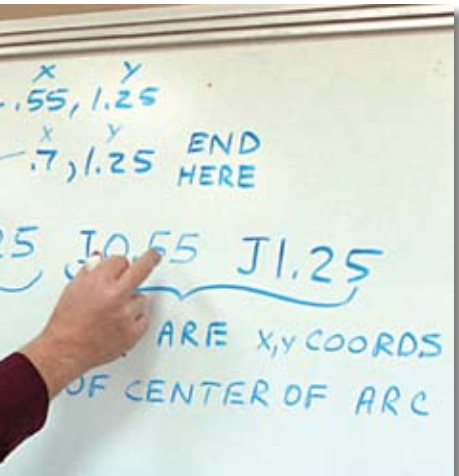 X Y
.55, 1.25
X Y
.7, 1.25 END HERE
25 I0.55 J1.25
ARE X,Y COORDS
OF CENTER OF ARC